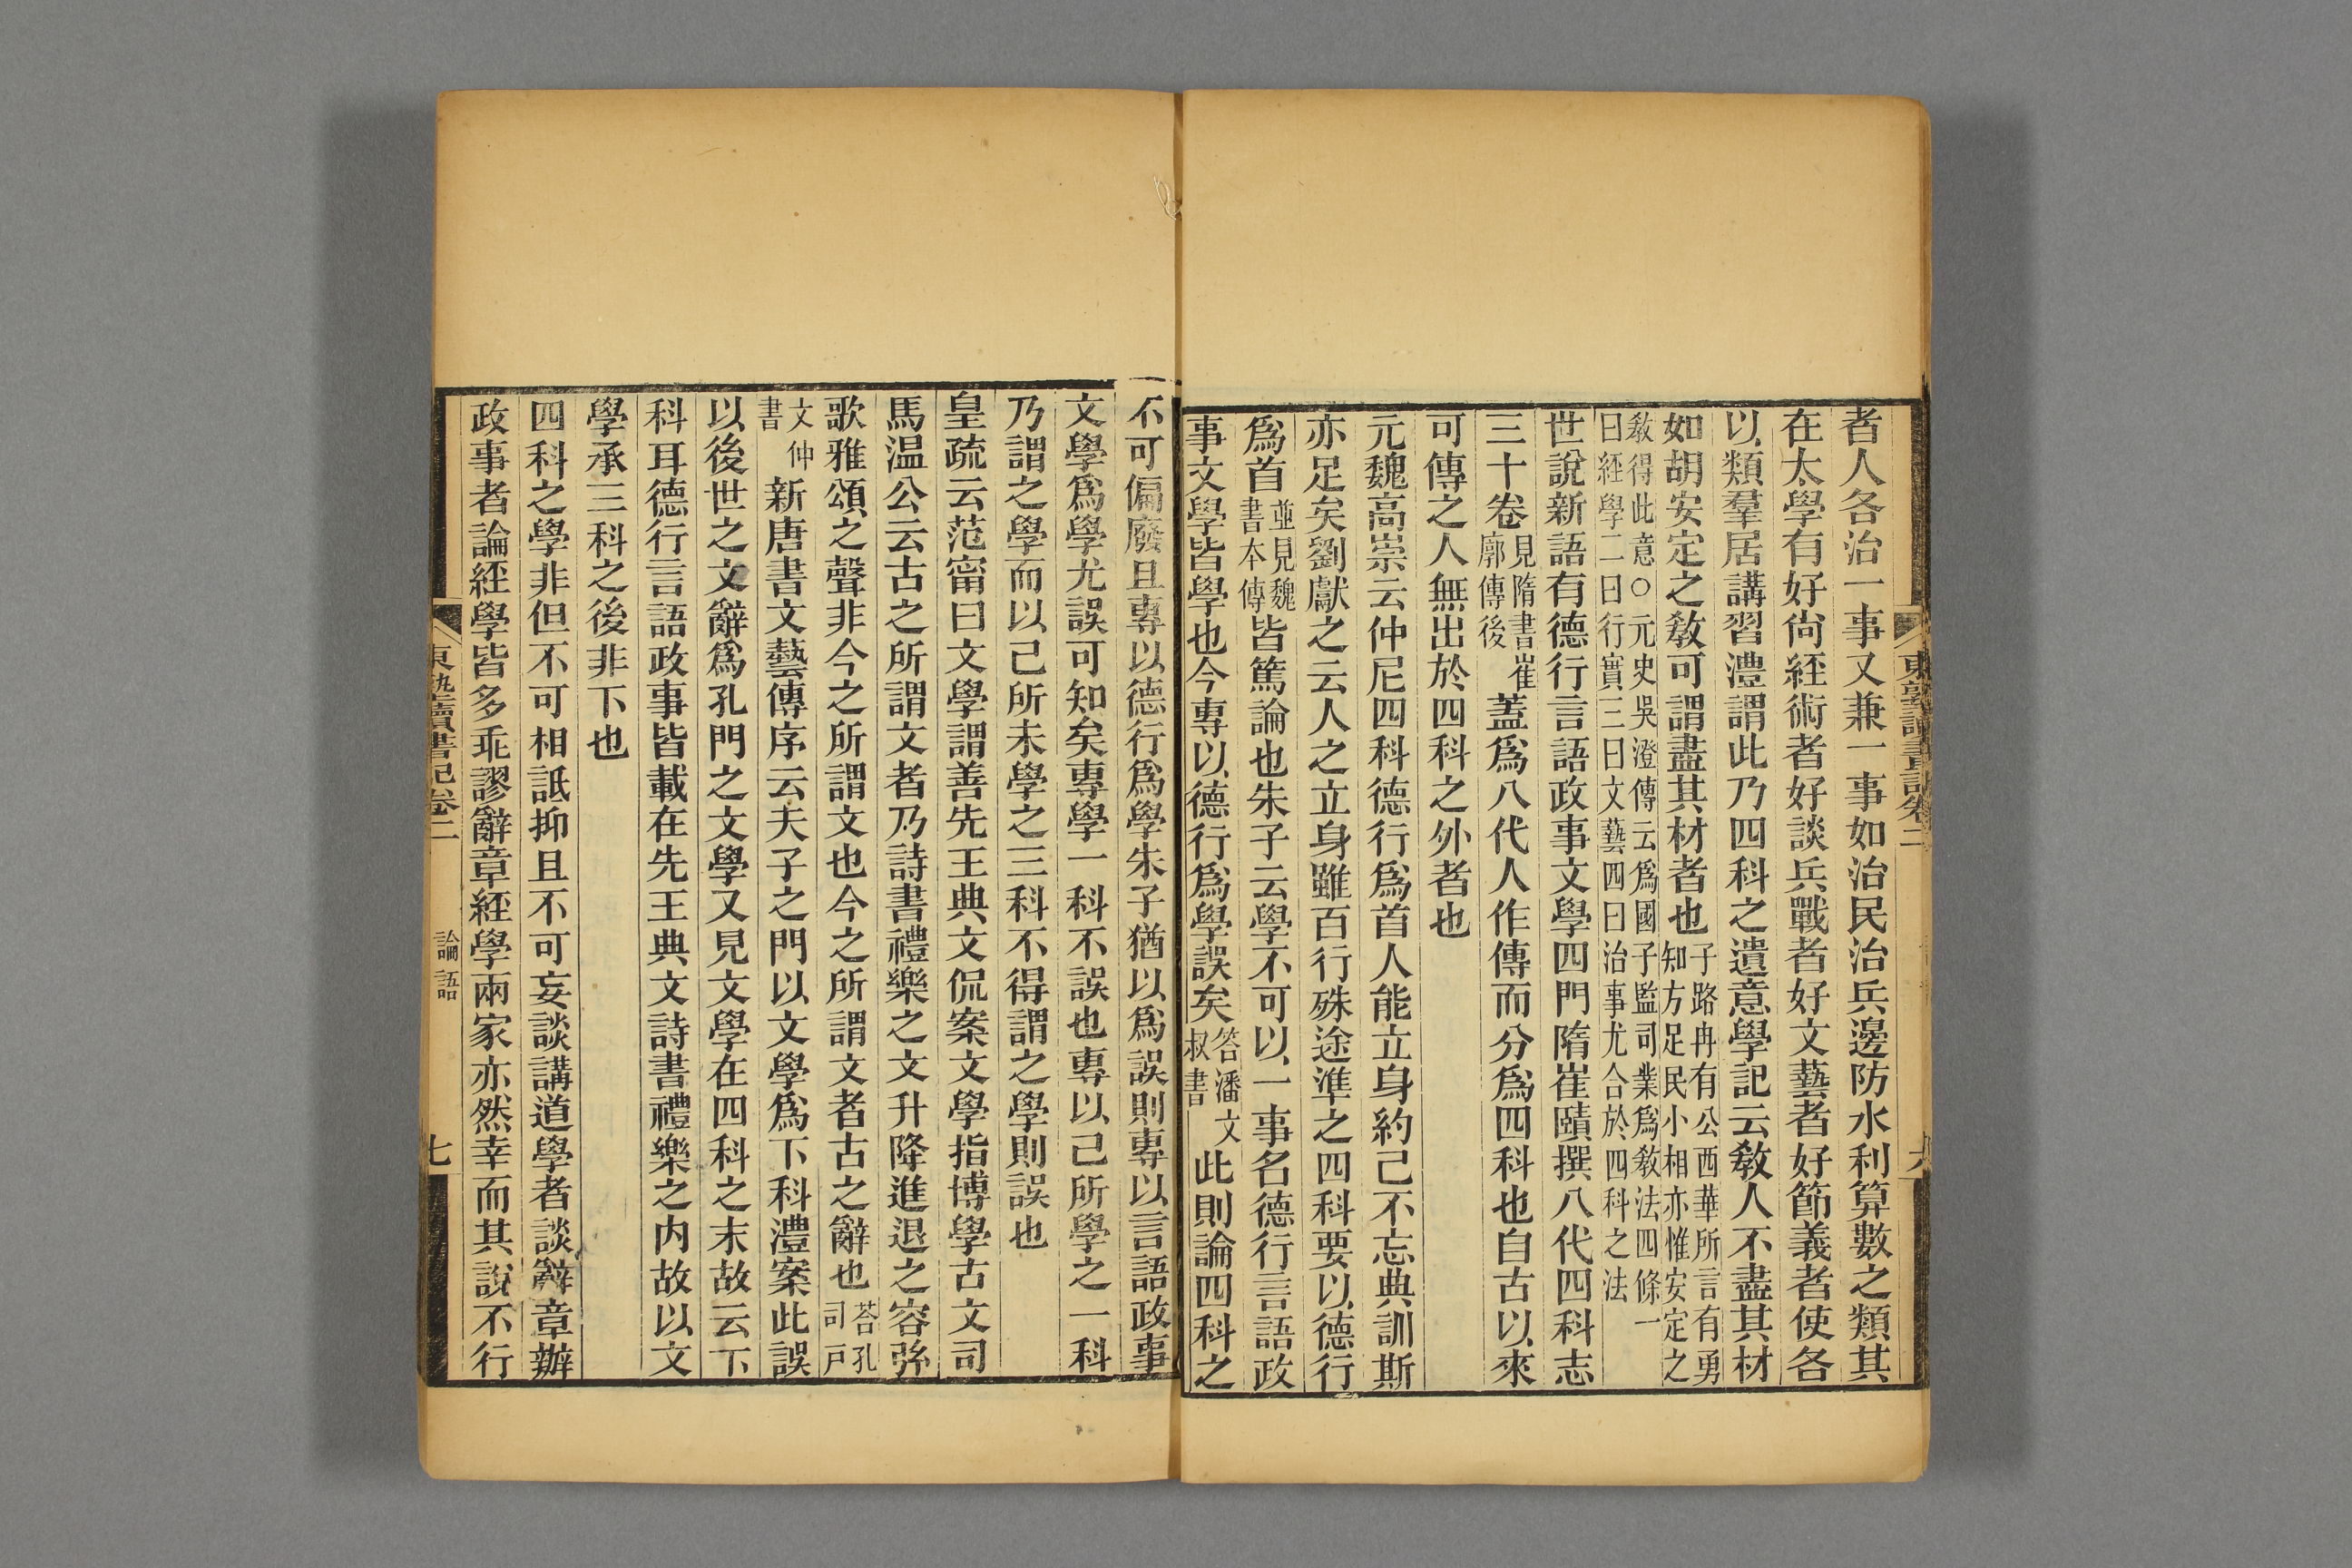 者人各治一事又兼一事如治民治兵邊防水利算數之類其
在太學有好尚經術者好談兵戰者好文藝者好節義者使各
以類羣居講習澧謂此乃四科之遺意學記云敎人不盡其材
如胡安定之敎可謂盡其材者也子路冉有公西華所言有勇
知方足民小相亦惟安定之
敎得此意○元史吳澄傳云爲國子監司業爲敎法四條一
曰經學二曰行實三曰文藝四曰治事尤合於四科之法
世說新語有德行言語政事文學四門隋崔賾撰八代四科志
三十卷見隋書崔
廓傳後蓋爲八代人作傳而分爲四科也自古以來
可傳之人無出於四科之外者也
元魏高崇云仲尼四科德行爲首人能立身約己不忘典訓斯
亦足矣劉獻之云人之立身雖百行殊途準之四科要以德行
爲首並見魏
書本傳皆篤論也朱子云學不可以一事名德行言語政
事文學皆學也今專以德行爲學誤矣答潘文
叔書此則論四科之
東塾讀書記卷二
六
不可偏廢且專以德行爲學朱子猶以爲誤則專以言語政事
文學爲學尤誤可知矣專學一科不誤也專以己所學之一科
乃謂之學而以己所未學之三科不得謂之學則誤也
皇疏云范甯曰文學謂善先王典文侃案文學指博學古文司
馬温公云古之所謂文者乃詩書禮樂之文升降進退之容弦
歌雅頌之聲非今之所謂文也今之所謂文者古之辭也荅孔
司戸
文仲
書新唐書文藝傳序云夫子之門以文學爲下科澧案此誤
以後世之文辭爲孔門之文學又見文學在四科之末故云下
科耳德行言語政事皆載在先王典文詩書禮樂之内故以文
學承三科之後非下也
四科之學非但不可相詆抑且不可妄談講道學者談辭章辦
政事者論經學皆多乖謬辭章經學兩家亦然幸而其說不行
東塾讀書記卷二
論語
七